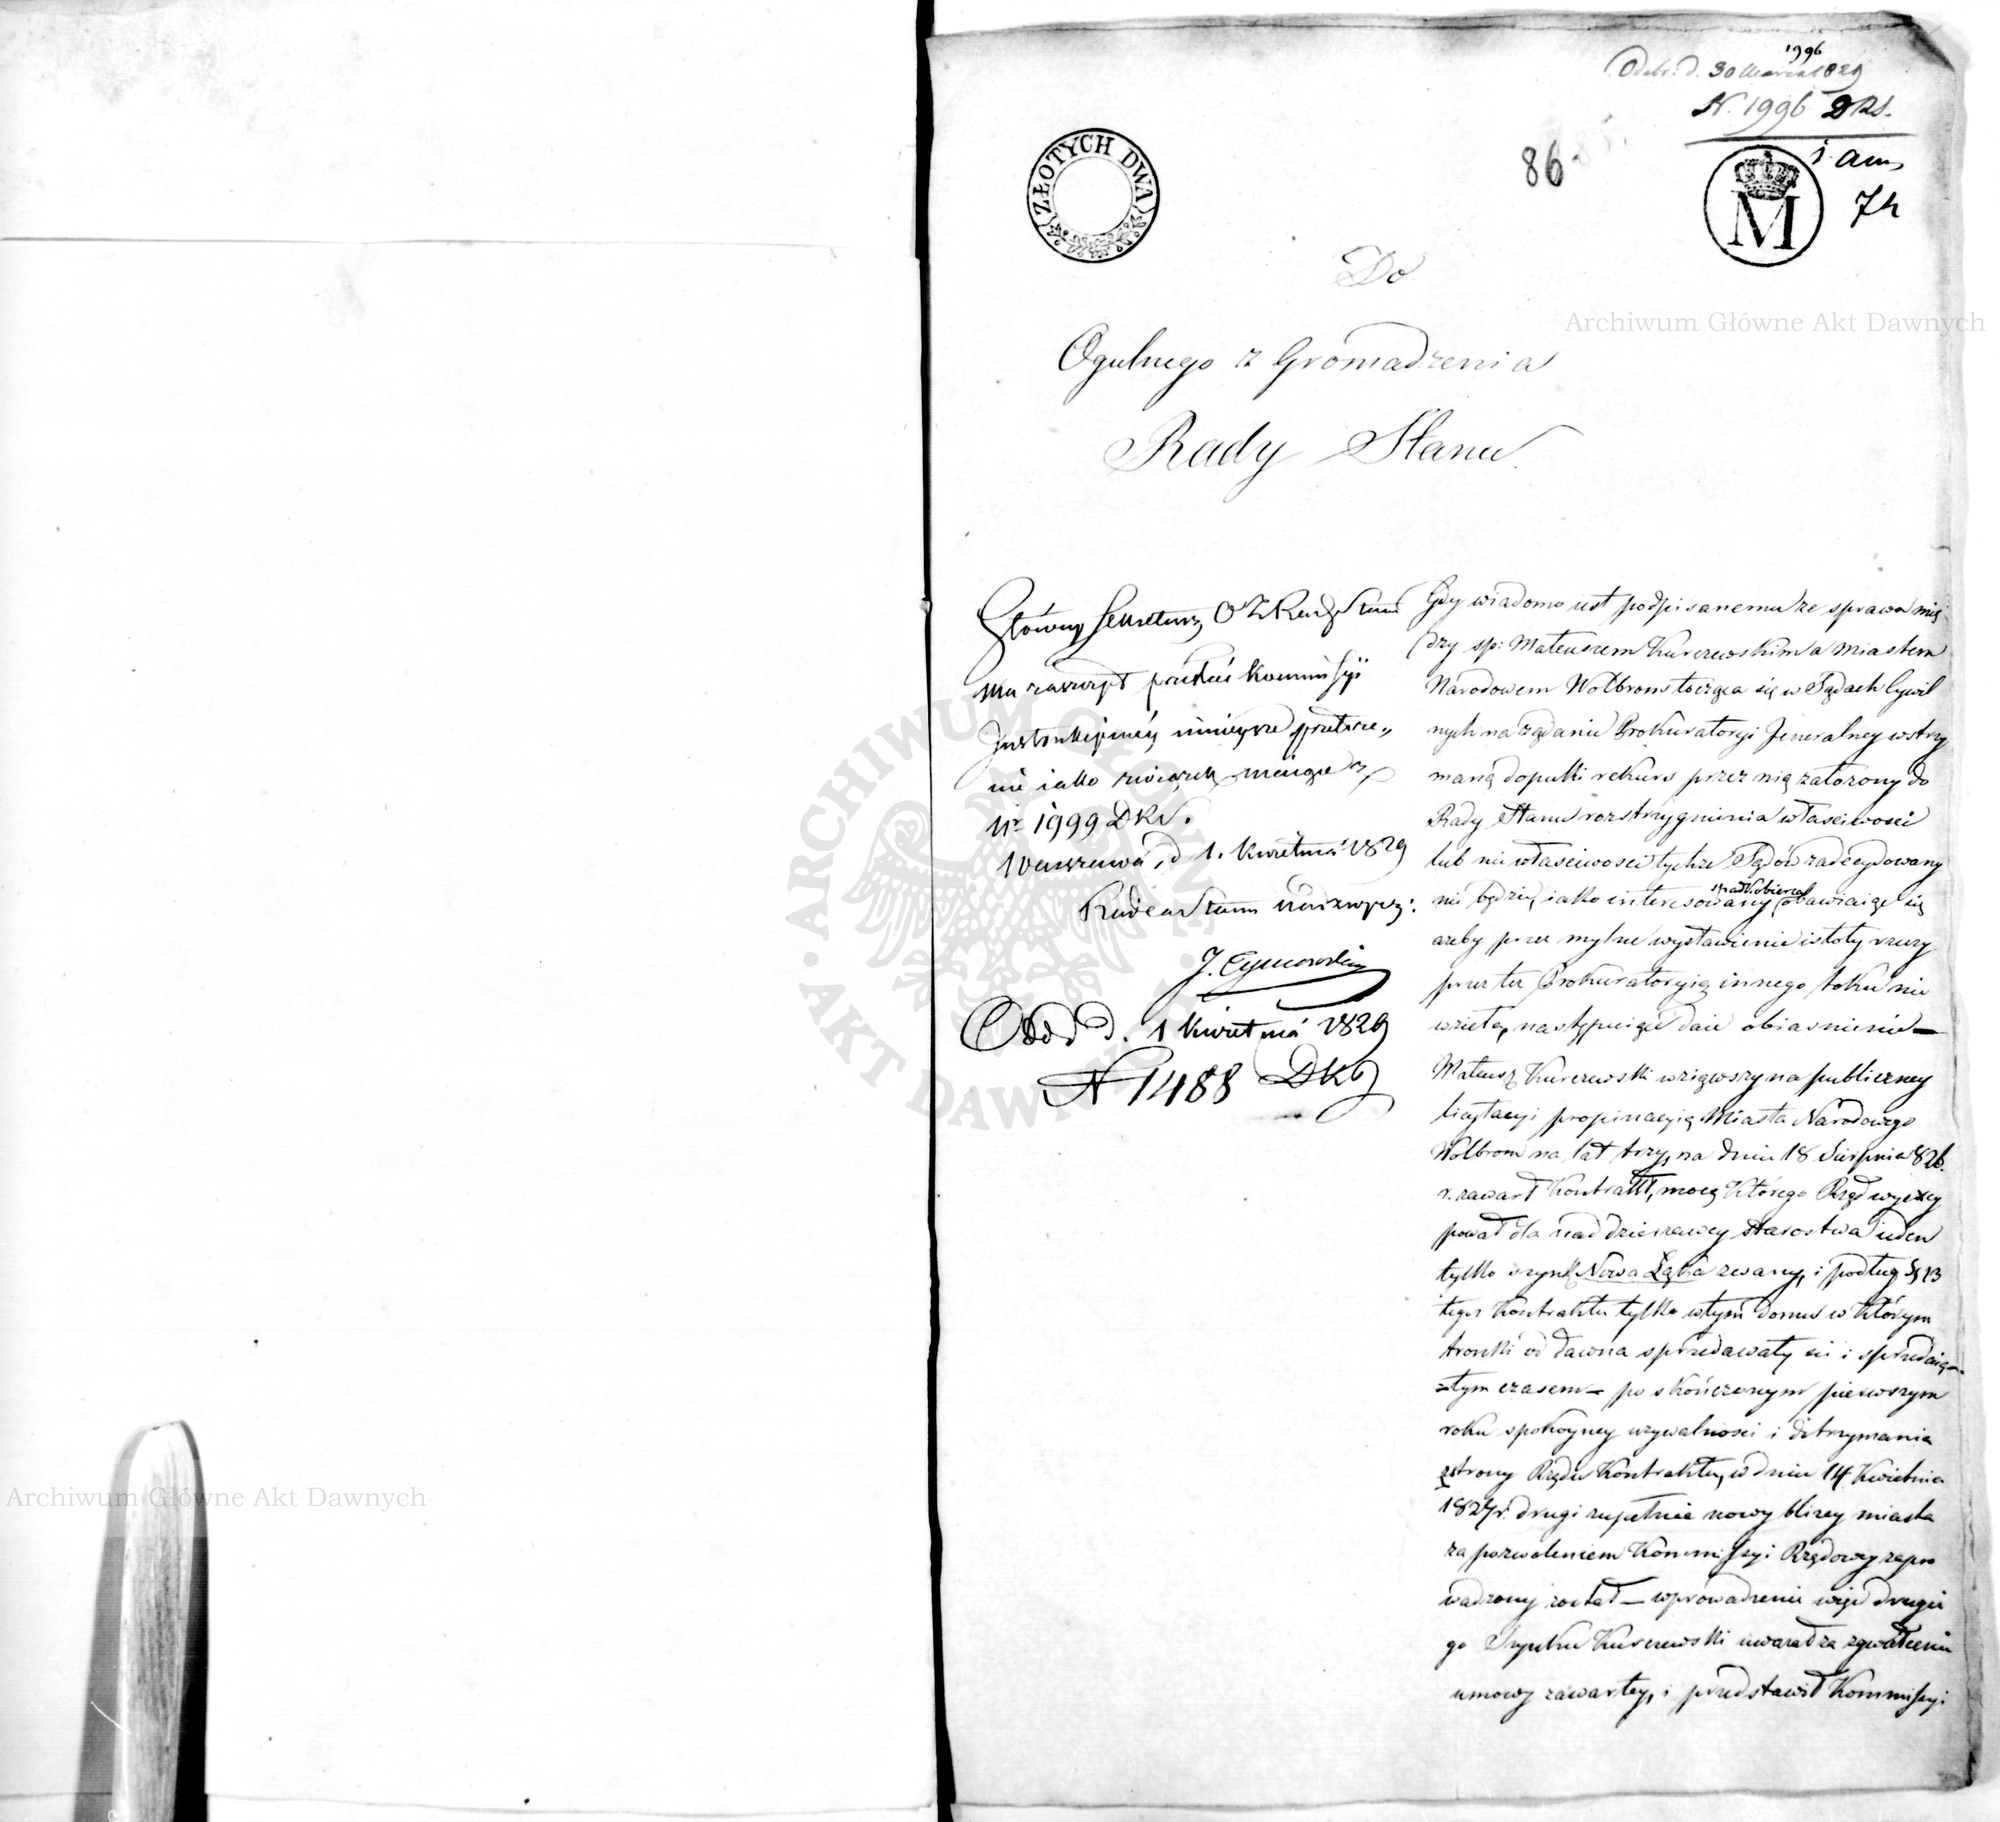 1996
Odebr. d. 30 Marca 1829
N. 1996 DRS.
ZŁOTYCH DWA
86
M
74
Do
Archiwum Główne Akt Dawnych
Ogulnego z Gromadzenia
Rady Stanu
Główny Sekretarz O Z Rady Stanu
ma zaszczyt przesłać Kommissyi
Instrukcyiney ninieysze przedsta„
nie iako związek maiące z
Nr 1999 DRS.
Warszawa, d 1. Kwietnia 1829
Radca Stanu Nadzwycz:
Odd d. 1 Kwietnia 1829
N 1488 DKJ
Gdy wiadomo iest podpisanemu że sprawa mię
dzy sp: Mateuszem Kurczewskim a Miastem
Narodowem Wolbrom tocząca się w Sądach Cywil
nych na żądanie Prokuratoryi Jeneralney wstrzy
maną dopuki rekurs przez nią założony do
Rady Stanu rozstrzygnienia właściwości
lub niewłaściwości tychże Sądów zadecydowany
nie będzie, iako interesowany spadkobierca obawiaiąc się
ażeby przez mylne wystawienie istoty rzeczy
przez też Prokuratoryią innego toku nie
wzieła, następuiące daie obiasnienie —
Mateusz Kurczewski wziąwszy na publiczney
licytacyi propinacyią Miasta Narodowego
Wolbrom na lat trzy, na dniu 18 Sierpnia 826.
r. zawarł Kontrakt, mocą którego Rząd wyexcy
pował dla nad dzierzawcy starostwa ieden
tylko szynk Nowa Łąka zwany, i podług § 13
tegoż Kontraktu tylko w tym domu w którym
trunki od dawna sprzedawały sie i sprzedaią —
z tym czasem — po skończonym pierwszym
roku spokoyney używalności i dotrzymania
z strony Rządu Kontraktu, w dniu 14 Kwietnia
1827 r. drugi zupełnie nowy bliżey miasta
za pozwoleniem Kommissyi Rządowey zapro
wadzony został — wprowadzenie więc drugie
go Szynku Kurczewski uwarał za zgwałcenie
umowy zawartey, i przedstawił Kommissyi
ARCHIWUM GŁÓWNE AKT DAWNYCH
Archiwum Główne Akt Dawnych